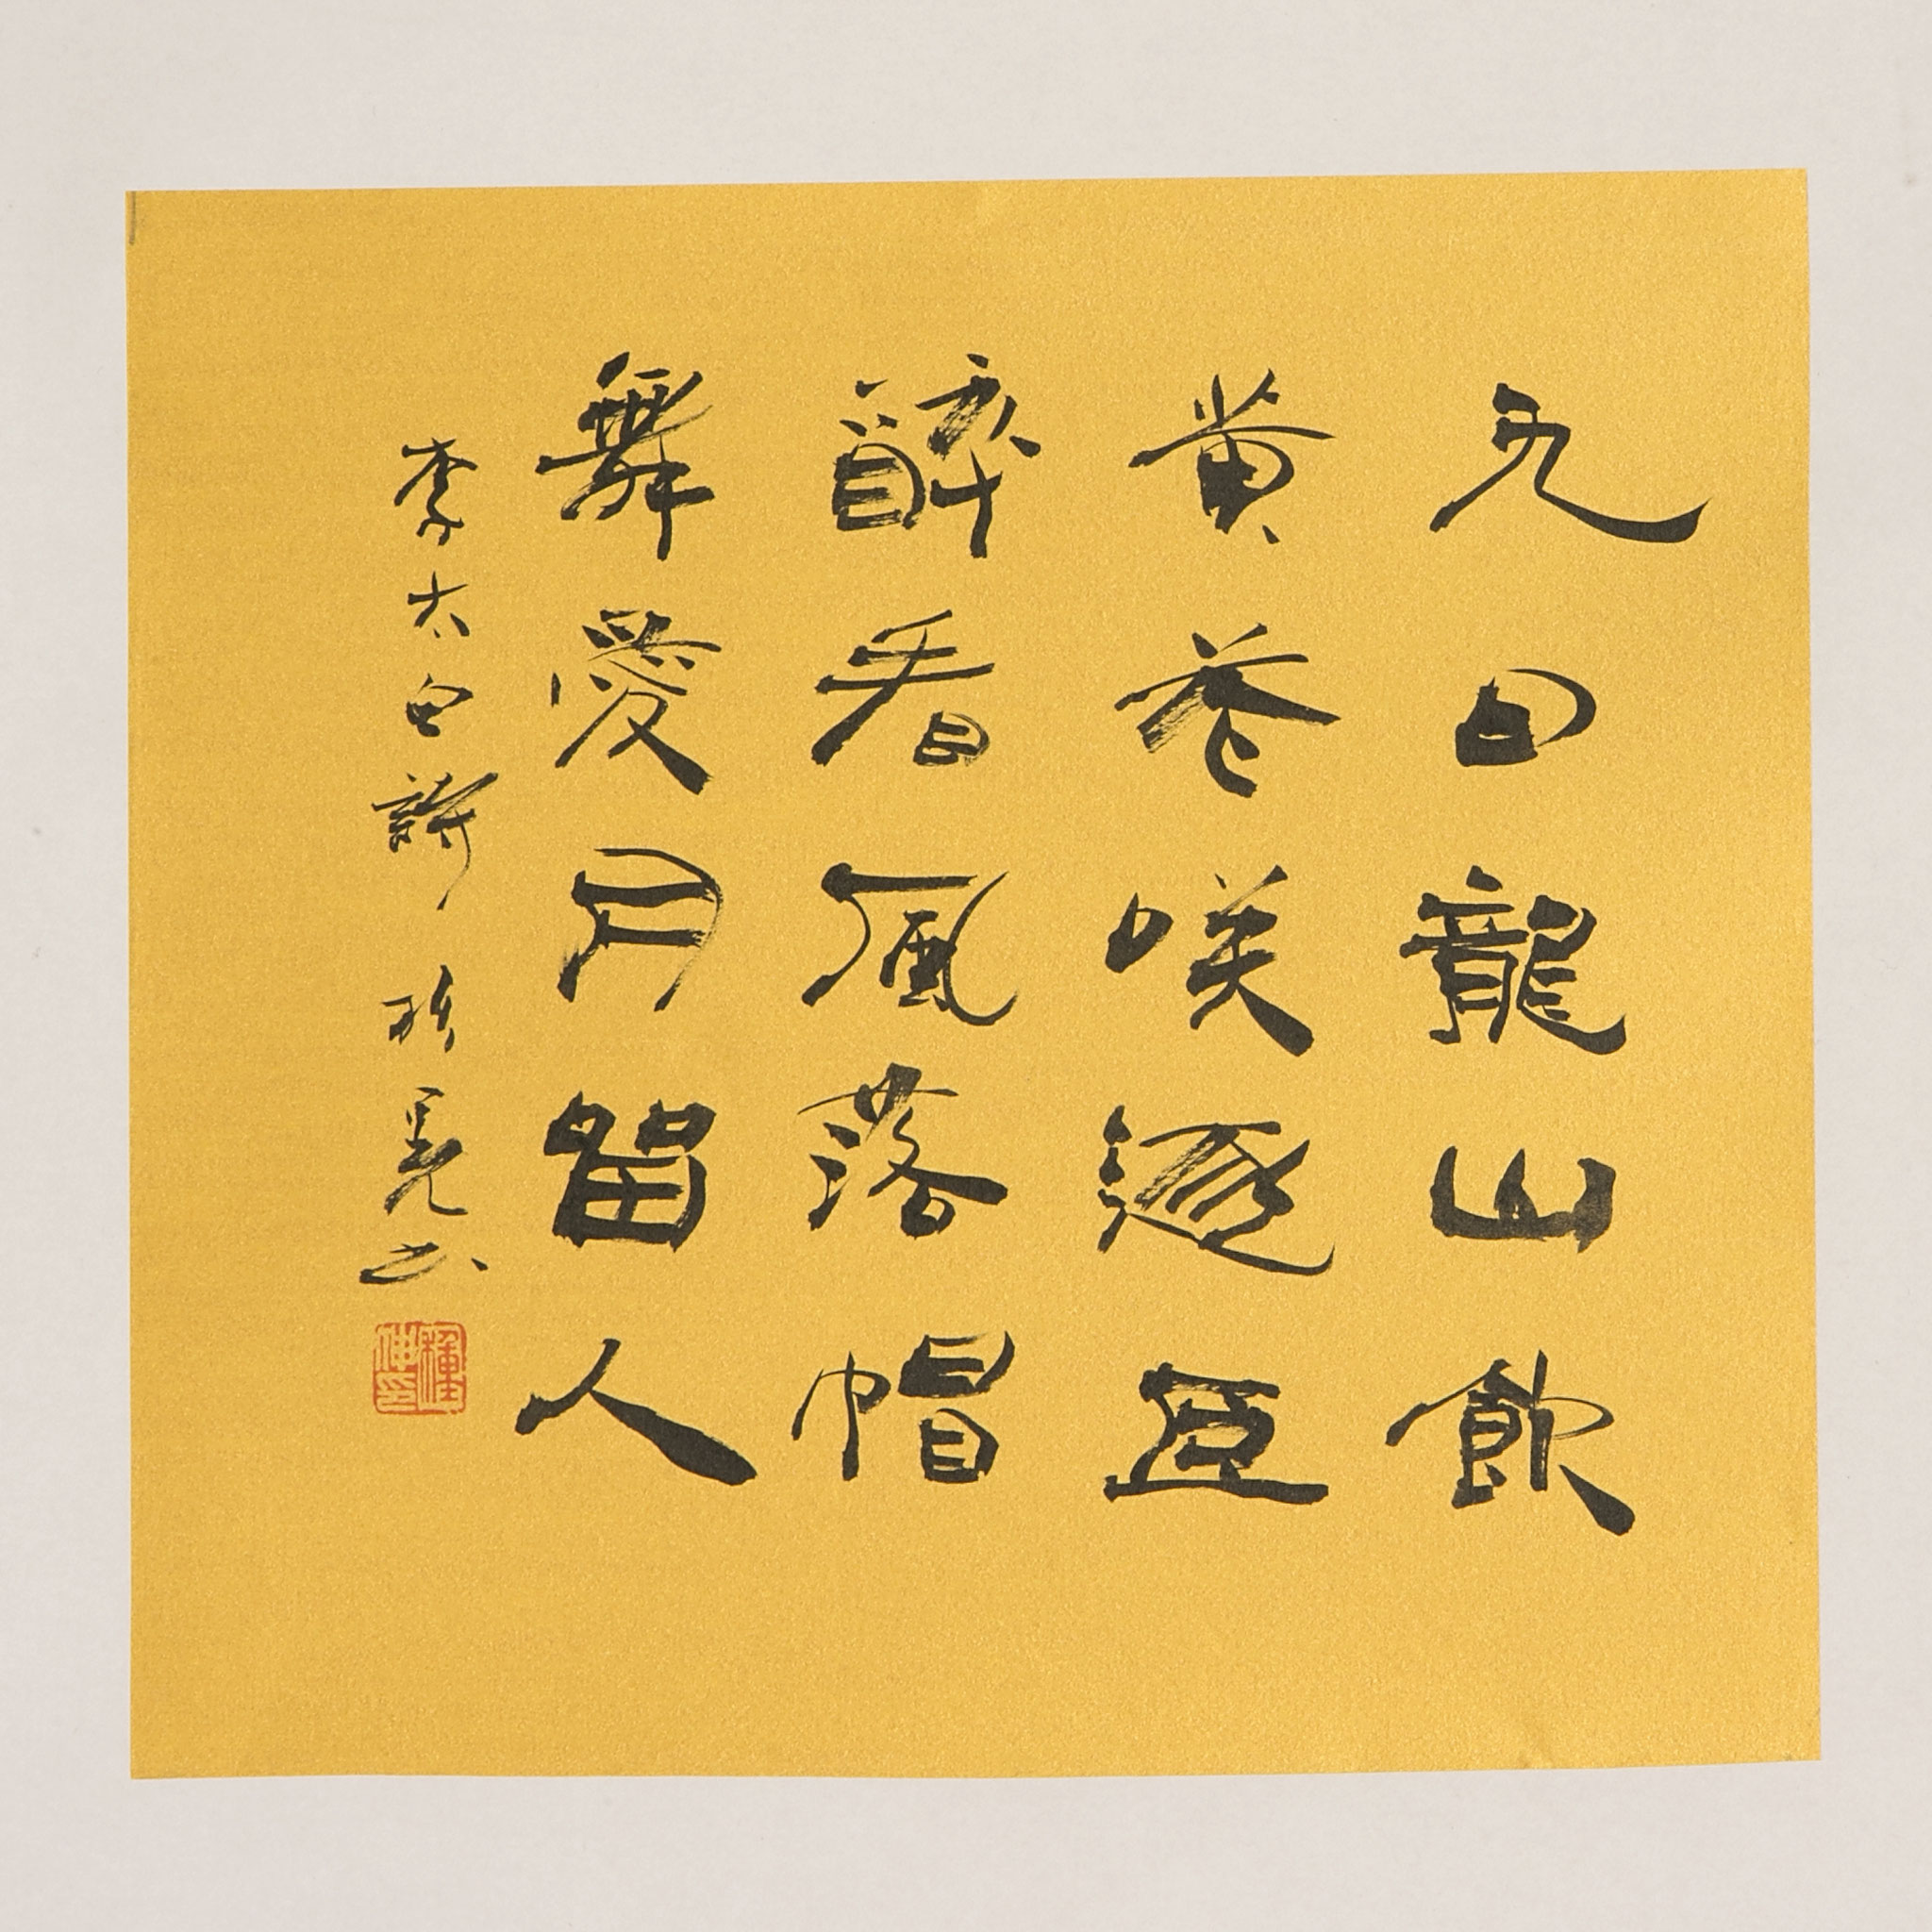 九日龍山飲
黄花咲逐臣
醉看風落帽
舞愛月留人
李太白詩 書